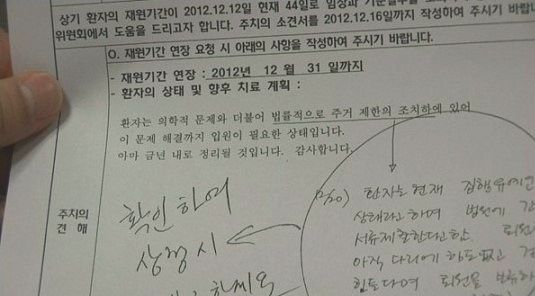 상기 환자의 재원기간이 2012.12.12일 현재 44일로
위원회에서 도움을 드리고자 합니다. 주치의 소견서를 2012.12.16일까지 작성하여 주시기 바랍니다.
O. 재원기간 연장 요청 시 아래의 사항을 작성하여 주시기 바랍니다.
- 재원기간 연장 : 2012년 12 월 31 일까지
- 환자의 상태 및 향후 치료 계획 :
환자는 의학적 문제와 더불어 법률적으로 주거 제한의 조치하에 있어
이 문제 해결까지 입원이 필요한 상태입니다.
아마 금년 내로 정리될 것입니다. 감사합니다.
주치의
견 해
확인하여
상정시
환자는 현재
상태라고 하며 법원에
서류제출한다고함.
아직 다리에 힘도 없고
힘들다며 퇴원을